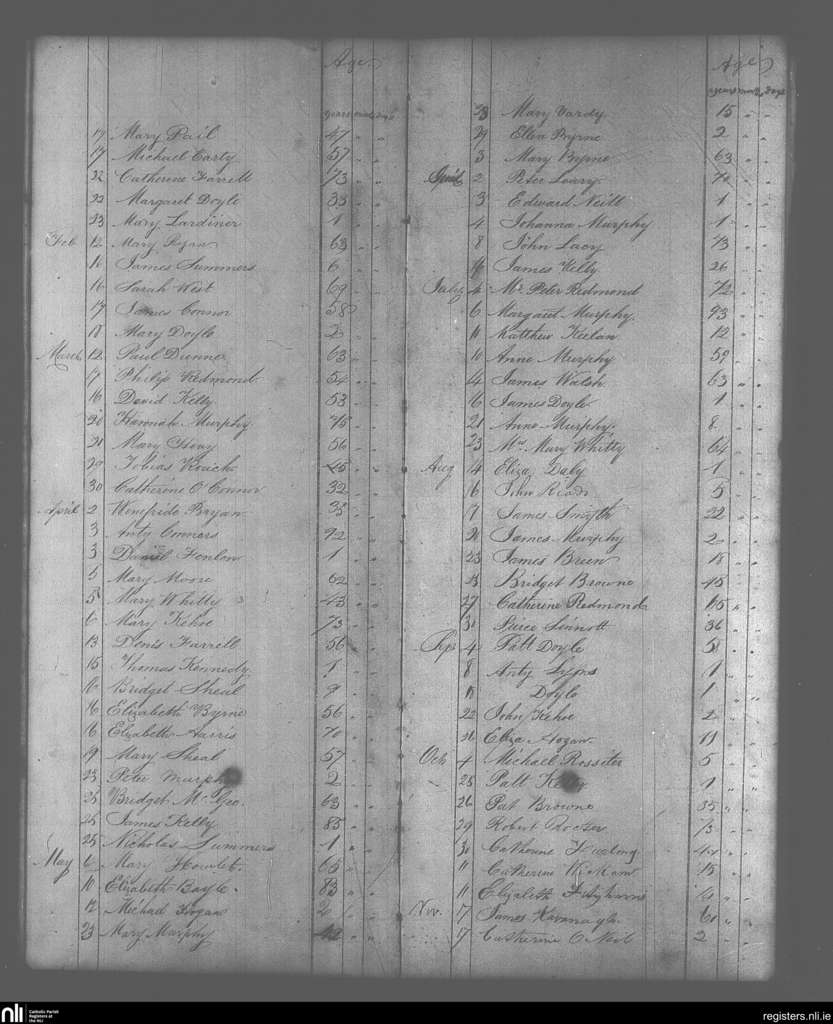 Age
years mnths days
17 Mary Pail 47 " "
17 Michael Carty 57 " "
22 Catherine Farrell 73 " "
22 Margaret Doyle 33 " "
23 Mary Lardiner 1 " "
Feb 12 Mary Ryan 63 " "
16 James Summers 6 " "
16 Sarah West 69 " "
17 James Connor 58 " "
18 Mary Doyle 2 " "
March 12 Paul Dunne 63 " "
17 Philip Redmond 54 " "
16 David Kelly 53 " "
20 Hannah Murphy 75 " "
21 Mary 56 " "
29 Tobias Rouich " "
30 Catherine O'Connor 32 " "
April 2 Winefride Bryan 33 " "
3 Anty Connors 92 " "
3 Daniel Fenlon 1 " "
5 Mary Moore 62 " "
5 Mary Whitty 43 " "
6 Mary Kehoe 73 " "
13 Denis Farrell 56 " "
15 Thomas Kennedy 1 " "
16 Bridget Sheal 9 " "
16 Elizabeth Byrne 56 " "
16 Elizabeth Harris 70 " "
19 Mary Sheal 57 " "
23 Peter Murphy 2 " "
25 Bridget McGee 63 " "
25 James Kelly 85 " "
25 Nicholas Summers 1 " "
May 6 Mary Howlet. 65 " "
10 Elizabeth Bayle. 83 " "
12 Michael Hogan 2 " "
23 Mary Murphy 42 " "
Age
years mnths days
28 Mary Vardy 15 " "
29 Ellen Byrne 2 " "
3 Mary Byrne 63 " "
April 2 Peter Leary 72 " "
3 Edward Neill 1 " "
4 Johanna Murphy 1 " "
8 John Lacy 73 " "
16 James Kelly 26 " "
July 4 Mr. Peter Redmond 72 " "
6 Margaret Murphy. 93 " "
11 Matthew Keelan 12 " "
10 Anne Murphy 59 " "
14 James Walsh 63 " "
16 James Doyle 1 " "
21 Anne Murphy. 8 " "
23 Mrs. Mary Whitty 64 " "
Aug 14 Eliza Daly 1 " "
16 John Reade 5 " "
17 James Smyth 22 " "
21 James Murphy 2 " "
23 James Breen 18 " "
23 Bridget Browne 45 " "
27 Catherine Redmond " "
31 Pierce Sinnott 36 " "
Sep 4 Patt Doyle 5 " "
8 Anty 1 " "
18 Doyle 1 " "
22 John Kehoe 2 " "
26 Eliza Hogan 11 " "
Oct 4 Michael Rossiter 5 " "
28 Patt Kelly 1 " "
26 Pat Browne 35 " "
29 Robert Procter 73 " "
31 Catherine Furlong " "
11 Catherine " "
11 Elizabeth Fitzharris " "
Nov. 17 James Kavanagh. 61 " "
17 Catherine O Neil 2 " "
nli
Catholic Parish
Registers at
the NLI
registers.nli.ie